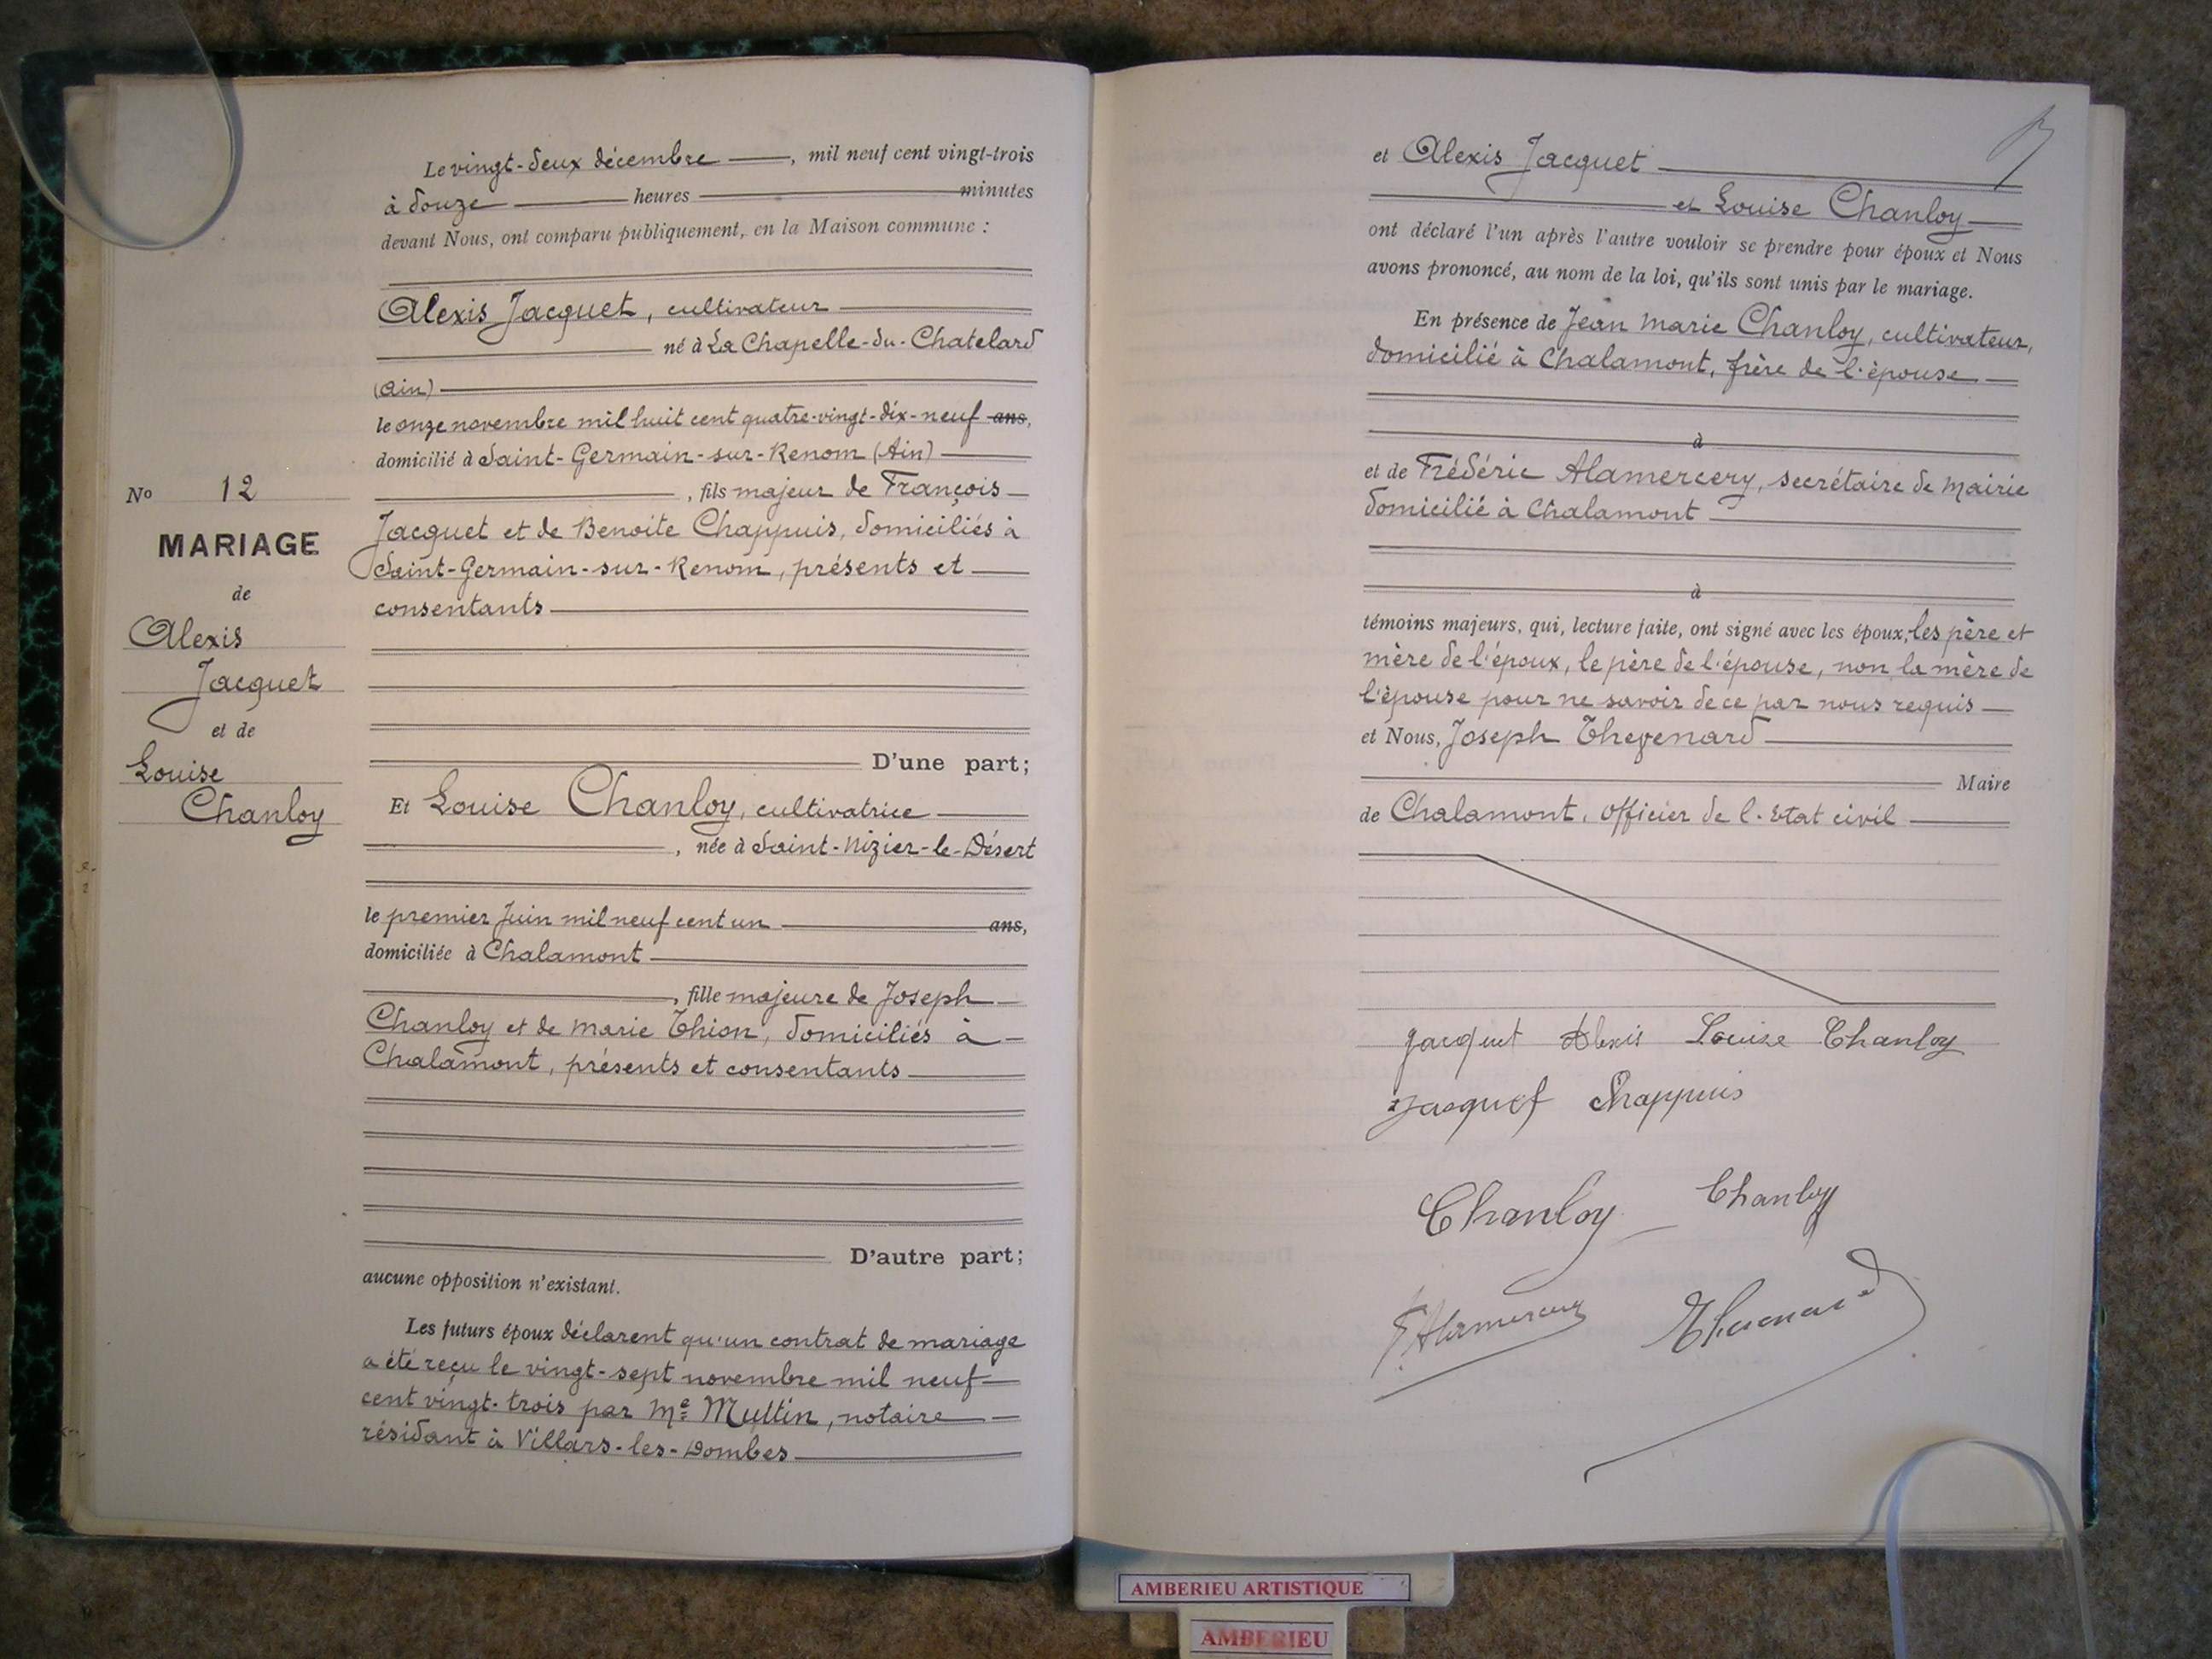 No 12
MARIAGE
de
Alexis
Jacquet
et de
Louise
Chanloy
Le vingt-deux décembre, mil neuf cent vingt-trois
à douze heures minutes
devant Nous, ont comparu publiquement, en la Maison commune :
Alexis Jacquet, cultivateur
né à La Chapelle-du-Chatelard
(Ain)
le onze novembre mil huit cent quatre-vingt-dix-neuf ans,
domicilié à Saint-Germain-sur-Renom (Ain)
, fils majeur de François
Jacquet et de Benoite Chappuis, domiciliés à
Saint-Germain-sur-Renom, présents et
consentants
D'une part;
Et Louise Chanloy, cultivatrice
, née à Saint-Nizier-le-Désert
le premier Juin mil neuf cent un ans,
domiciliée à Chalamont
, fille majeure de Joseph
Chanloy et de Marie Thion, domiciliés à
Chalamont, présents et consentants
D'autre part;
aucune opposition n'existant.
Les futurs époux déclarent qu'un contrat de mariage
a été reçu le vingt-sept novembre mil neuf
cent vingt-trois par Me Multin, notaire
résidant à Villars-les-Dombes
et Alexis Jacquet
et Louise Chanloy
ont déclaré l'un après l'autre vouloir se prendre pour époux et Nous
avons prononcé, au nom de la loi, qu'ils sont unis par le mariage.
En présence de Jean Marie Chanloy, cultivateur,
domicilié à Chalamont, frère de l'épouse
à
et de Frédéric Alamercery, secrétaire de Mairie
domicilié à Chalamont
à
témoins majeurs, qui, lecture faite, ont signé avec les époux, les père et
mère de l'époux, le père de l'épouse, non la mère de
l'épouse pour ne savoir de ce par nous requis
et Nous, Joseph Thevenard
Maire
de Chalamont, officier de l'Etat civil
Jacquet Alexis Louise Chanloy
Jacquet Chappuis
Chanloy Chanloy
F. Alamercery Thevenard
AMBERIEU ARTISTIQUE
AMBERIEU